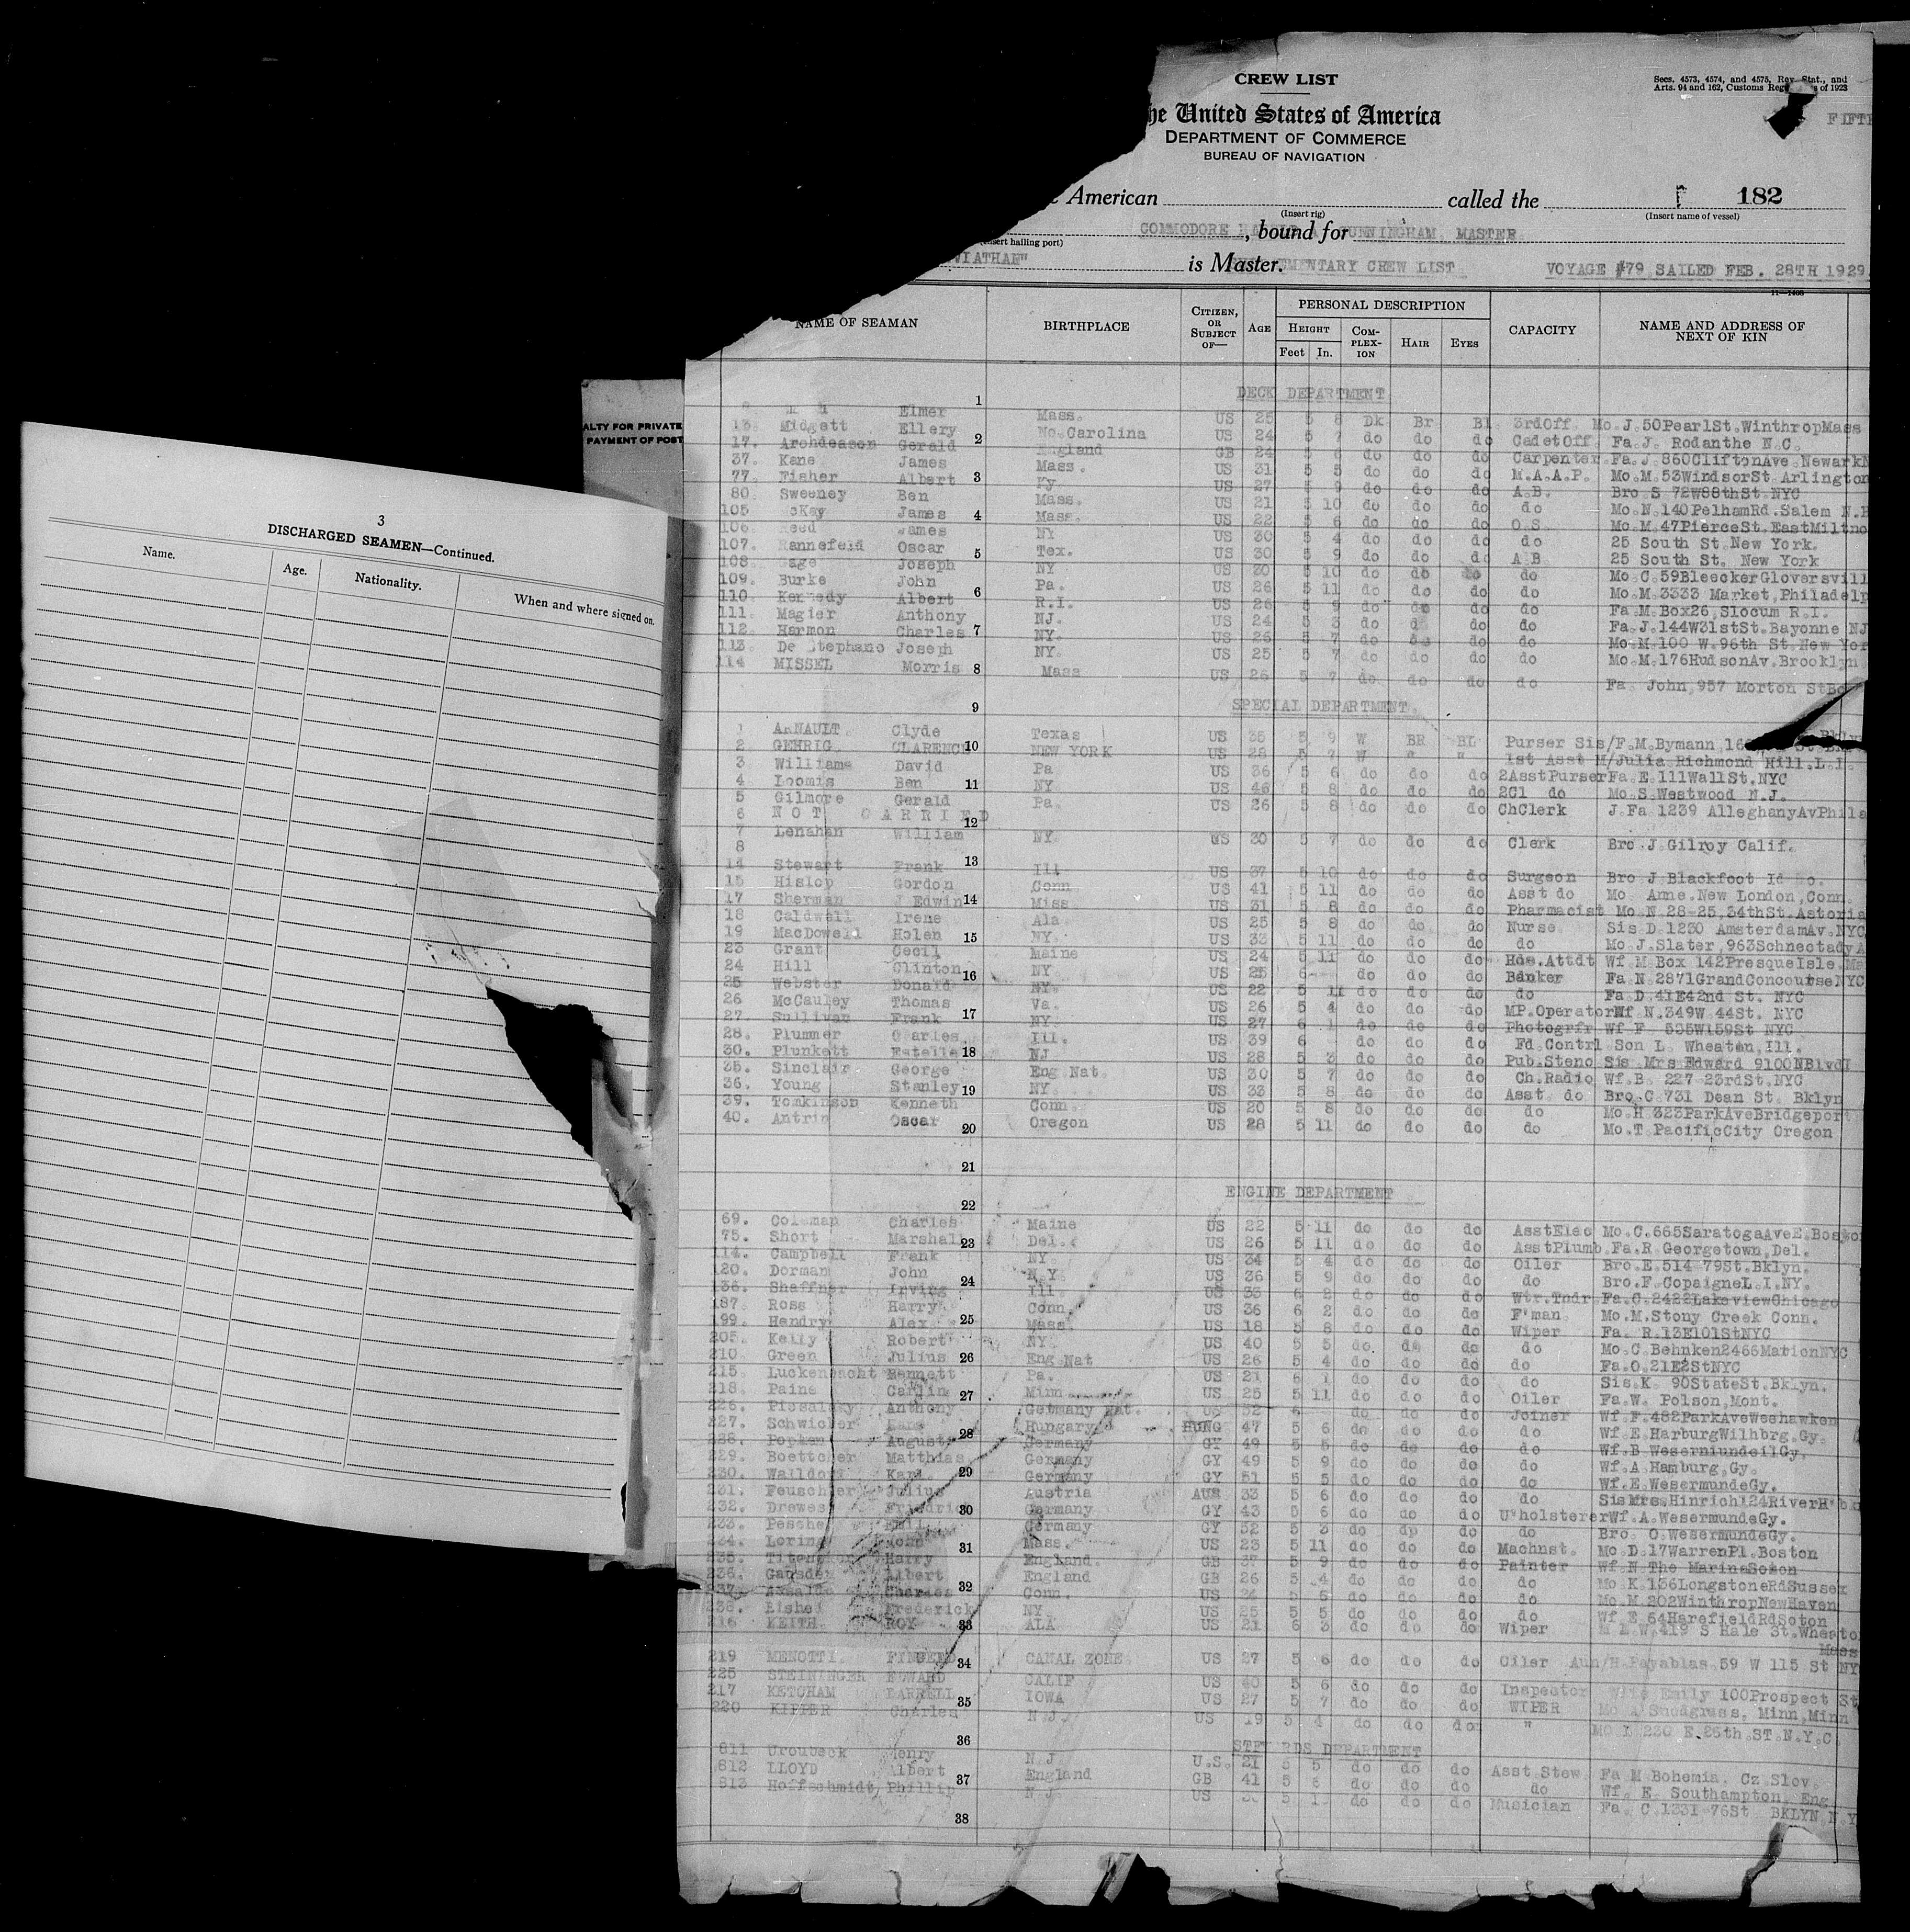 CREW LIST
Secs. 4573, 4574, and 4575, Rev. Stat., and
Arts. 94 and 162, Customs Reg of 1923
he United States of America
FIFTE
DEPARTMENT OF COMMERCE
BUREAU OF NAVIGATION
American called the 182
(Insert rig) (Insert name of vessel)
COMMODORE CUNNINGHAM MASTER
, bound for
(Insert hailing port)
VIATHAN"
is Master. EMENTARY CREW LIST VOYAGE #79 SAILED FEB. 28TH 1929
11—1468
NAME OF SEAMAN BIRTHPLACE CITIZEN, OR SUBJECT OF— AGE PERSONAL DESCRIPTION CAPACITY NAME AND ADDRESS OF NEXT OF KIN
HEIGHT COM-PLEX-ION HAIR EYES
Feet In.
1 DECK DEPARTMENT
Elmer Mass. US 25 5 8 Dk Br Bl 3rdOff Mo J. 50PearlSt.WinthropMass
13. Midgett Ellery 2 No Carolina US 24 5 7 do do do CadetOff Fa J. Rodanthe N.C.
17. Archdeacon Gerald England GB 24 5 6 do do do Carpenter Fa.J 860CliftonAve NewarkN
37. Kane James Mass. US 31 5 5 do do do M.A.A.P. Mo.M.53WindsorSt Arlington
77. Fisher Albert 3 Ky. US 27 5 9 do do do A.B. Bro S 72W88thSt.NYC
80. Sweeney Ben Mass. US 21 5 10 do do do do Mo N.140PelhamRd.Salem N.H
105 McKay James 4 Mass. US 22 5 6 do do do O.S. Mo M.47PierceSt.EastMiltno
106. Reed James NY US 30 5 4 do do do do 25 South St New York.
107. Rannefeld Oscar 5 Tex. US 30 5 9 do do do A B 25 South St. New York
108. Gage Joseph NY US 30 5 10 do do do do Mo C.59BleeckerGloversvill
109. Burke John Pa. US 26 5 11 do do do do Mo.M.3333 Market,Philadelp
110. Kennedy Albert 6 R.I. US 26 5 9 do do do do Fa M.Box26,Slocum R.I.
111. Magier Anthony NJ. US 24 5 3 do do do do Fa.J.144W31stSt.Bayonne NJ
112. Harmon Charles 7 NY. US 26 5 7 do do do do Mo M.100 W.96th St.New Yor
113. De Stephano Joseph NY. US 25 5 7 do do do do Mo.M.176HudsonAv.Brooklyn
114 MISSEL Morris 8 Mass US 26 5 7 do do do do Fa John 957 Morton StBo
9 SPECIAL DEPARTMENT.
1 ARNAULT Clyde Texas US 35 5 9 W BR BL Purser Sis/F.M.Bymann
2 GEHRIG CLARENCE 10 NEW YORK US 28 5 7 W " " 1st Asst M/Julia Richmond Hill.L.I.
3 Williams David Pa US 36 5 6 do do do 2AsstPurser Fa.E.111WallSt.NYC
4 Loomis Ben 11 NY US 46 5 8 do do do 2Cl do Mo.S.Westwood N.J.
5 Gilmore Gerald Pa. US 26 5 8 do do do ChClerk J.Fa 1239 AlleghanyAvPhila
6 NOT CARRIED 12
7 Lenahan William NY. US 30 5 7 do do do Clerk Bro.J Gilroy Calif.
8
14 Stewart Frank 13 Ill US 37 5 10 do do do Surgeon Bro J Blackfoot
15 Hislop Gordon Conn US 41 5 11 do do do Asst do Mo Anne.New London,Conn.
17 Sherman J Edwin 14 Miss US 31 5 8 do do do Pharmacist Mo N 28-25,34thSt.Astoria
18 Caldwell Irene Ala US 25 5 8 do do do Nurse Sis D 1230 AmsterdamAv.NYC
19 MacDowell Helen 15 NY. US 33 5 11 do do do do Mo J.Slater,963SchnectadyA
23 Grant Cecil Maine US 24 5 11 do do do Hos.Attdt Wf M Box 142PresqueIsle
24 Hill Clinton 16 NY US 25 6 do do do Banker Fa N 2871GrandConcourseNYC
25 Webster Donald NY. US 22 5 11 do do do do Fa D.41E42nd St. NYC
26 McCauley Thomas Va. US 26 5 4 do do do MP.Operator Wf N.349W 44St. NYC
27. Sullivan Frank 17 NY. US 27 6 1 do do do Photogrfr Wf F 535W159St NYC
28. Plummer Charles Ill. US 39 6 do do do Fd Contrl Son L Wheaton,Ill.
30. Plunkett Estelle 18 NJ US 28 5 3 do do do Pub.Steno Sis Mrs Edward 9100NBlvd
35. Sinclair George Eng Nat. US 30 5 7 do do do Ch.Radio Wf.B 227 23rdSt.NYC
36. Young Stanley 19 NY. US 33 5 8 do do do Asst do Bro.C 731 Dean St. Bklyn
39. Tomkinson Kenneth Conn. US 20 5 8 do do do do Mo.H 323ParkAveBridgeport
40. Antrim Oscar 20 Oregon US 28 5 11 do do do do Mo.T PacificCity Oregon
21
22 ENGINE DEPARTMENT
69. Coleman Charles Maine US 22 5 11 do do do AsstElec Mo.C.665SaratogaAveE.Boston
75. Short Marshal 23 Del. US 26 5 11 do do do AsstPlumb Fa.R Georgetown,Del.
114. Campbell Frank NY US 34 5 4 do do do Oiler Bro.E.514 79St.Bklyn.
120. Dorman John 24 N Y US 36 5 9 do do do do Bro.F.CopaigneL I.NY.
136. Shaffner Irving Ill US 33 6 2 do do do Wtr.Tndr Fa.C.2422LakeviewChicago
187. Ross Harry Conn. US 36 6 2 do do do F'man Mo.M.Stony Creek Conn.
199. Handry Alex 25 Mass. US 18 5 8 do do do Wiper Fa. R.13E101StNYC
205. Kelly Robert NY. US 40 5 5 do do do do Mo.C Behnken2466MarionNYC
210. Green Julius 26 Eng Nat US 26 5 4 do do do do Fa.O.21E2StNYC
215. Luckenbacht Bennett Pa. US 21 6 1 do do do do Sis.K 90StateSt.Bklyn.
218. Paine Carlin 27 Minn US 25 5 11 do do do Oiler Fa.W. Polson,Mont.
226. Anthony Germany Nat. US 52 6 do do do Joiner Wf.F.482ParkAveWeehawken
227. Schwicker 28 Hungary HUNG 47 5 6 do do do do Wf.E HarburgWilhbrg.Gy.
228. Popken August Germany GY 49 5 5 do do do do Wf.B
229. Boettcher Matthias Germany GY 49 5 9 do do do do Wf.A Hamburg,Gy.
230. Walldorf Karl 29 Germany GY 51 5 5 do do do do Wf.E.WesermundeGy.
231. Feuschler Julius Austria AUS 33 5 6 do do do do SisMrs.Hinrich124RiverH
232. Drewes Friedric 30 Germany GY 43 5 6 do do do U'holsterer Wf.A.WesermundeGy.
233. Pesche Germany GY 52 5 3 do do do do Bro. O.WesermundeGy.
234. Loring John 31 Mass. US 23 5 11 do do do Machnst. Mo.D.17WarrenPl.Boston
235. Harry England. GB 37 5 9 do do do Painter Wf.N The
236. Gausden Albert 32 England GB 26 5 4 do do do do Mo K.136LongstoneRdSussex
237. Charles Conn. US 24 5 5 do do do do Mo M.202WinthropNewHaven
238. Frederick NY. US 25 5 5 do do do do Wf E 64HarefieldRdSoton
216 KEITH ROY 33 ALA US 21 6 3 do do do Wiper 419 S Hale St.Wheato
Mass
219 MENOTTI 34 CANAL ZONE US 27 5 6 do do do Oiler Aun/H.Payablas.59 W 115 St NY
225 STEININGER EDWARD CALIF US 40 5 6 do do do Inspector Emily 100Prospect St
217 KETCHAM DARRELL 35 IOWA US 27 5 7 do do do WIPER Snodgrass, Minn,Minn
220 KIPPER Charles N.J. US 19 5 4 do do do " MO 220 E.26th ST.N.Y.C.
36 STEWARDS DEPARTMENT
811 Uroubeck Henry N J U.S. 21 5 5 do do do Asst Stew Fa M Bohemia, Cz Slov.
812 LLOYD Albert 37 England GB 41 5 6 do do do do Wf. E. Southampton, Eng
813 Hoffschmidt, Phillip N J US 5 do do do Musician Fa. C.1331 76St BKLYN N Y
38
ALTY FOR PRIVATE
PAYMENT OF POST
3
DISCHARGED SEAMEN—Continued.
Name. Age. Nationality. When and where signed on.